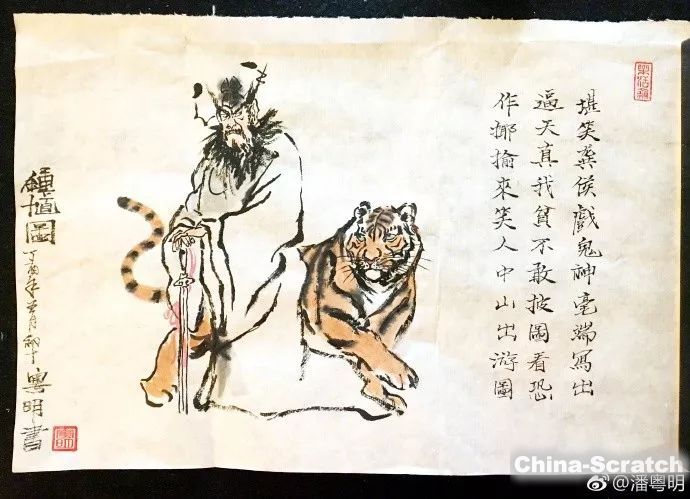 堪笑龔侯戲鬼神毫端寫出
逼天真我貧不敢披圖看恐
作揶揄來笑人中山出游圖
鍾馗圖
丁酉年 月 粵明書
China-Scratch
@潘粤明